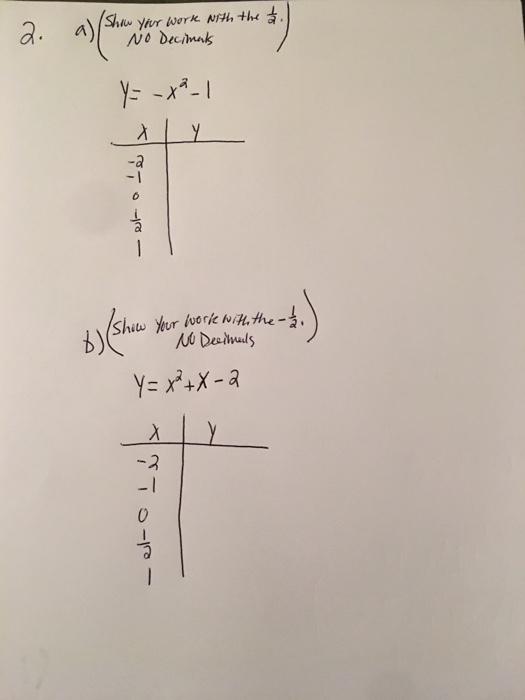 2. a) (Show Your Work With the 1/2.)
NO Decimals
Y= -x²-1
X Y
-2
-1
0
1/2
1
b) (Show Your Work With the -1/2.)
NO Decimals
Y= x²+X-2
X Y
-2
-1
0
1/2
1